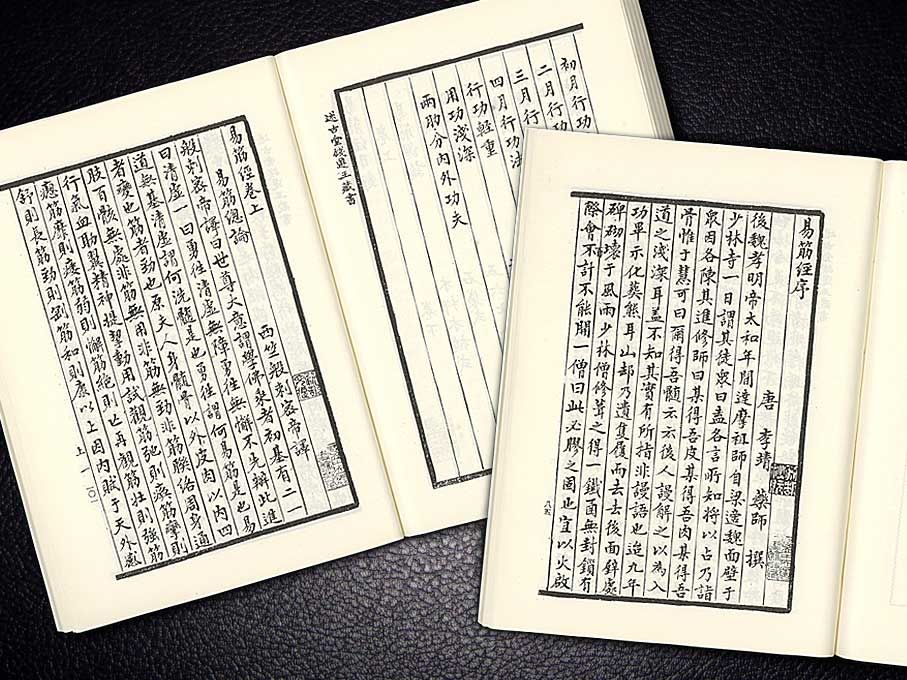 易筋經序
唐 李靖 藥師 撰
後魏孝明帝太和年間達摩祖師自梁適魏面壁于
少林寺一日謂其徒眾曰盍各言所知將以占乃詣
眾因各陳其進修師曰某得吾皮某得吾肉某得吾
骨惟于慧可曰爾得吾髓云云後人謾解之以為入
道之淺深耳蓋不知其實有所指非謾語也迨九年
功畢示化葬熊耳山卻乃遺隻履而去去後面壁處
碑砌壞于風雨少林僧修葺之得一鐵函無封鎖有
際會不計不能開一僧曰此必膠之固也宜以火啟
八五
初月行功
二月行功
三月行功法
四月行功法
行功輕重
用功淺深
兩肋分內外功夫
述古堂錢遵王藏書
易筋經卷上
易筋總論
西竺般剌密帝譯
般剌密帝譯曰世尊大意謂學佛乘者初基有二一
曰清虛一曰勇往清虛無障勇往無懈不先辦此進
道無基清虛謂何洗髓是也勇往謂何易筋是也易
者變也筋者勁也原夫人身髓骨以外皮肉以內四
肢百骸無處非筋無用非筋無勁非筋聯絡周身通
行氣血助翼精神提挈動用試觀筋弛則瘓筋攣則
瘛筋靡則痿筋弱則懈筋絕則亡再觀筋壯則強筋
舒則長筋勁則剛筋和則康以上因內賦于天外感
上一
一〇一